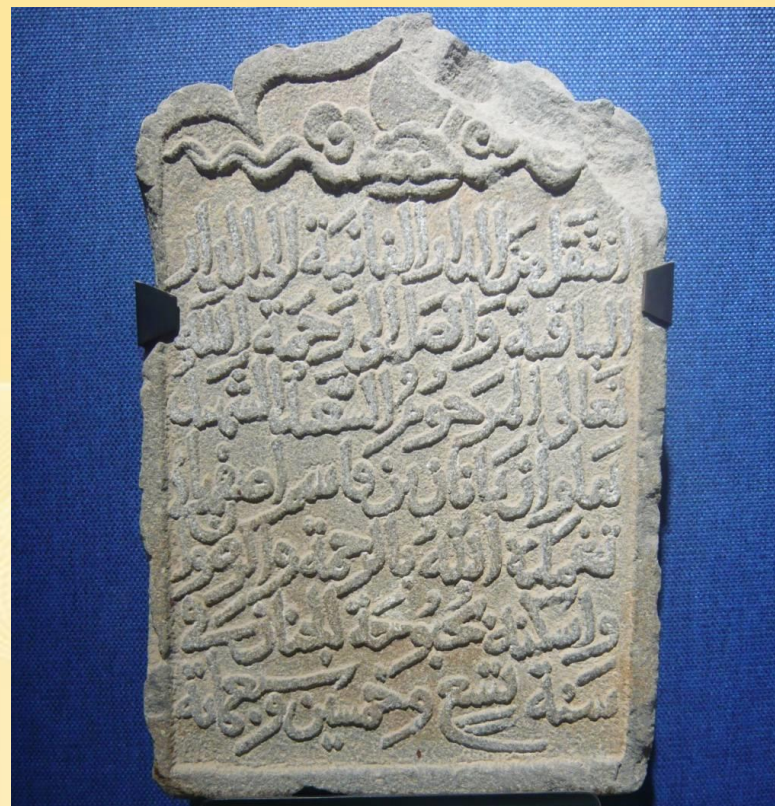 انتقل من الدار الفانية الى الدار
الباقية واتصل الى رحمة الله
تعالى المرحوم السعيد الشهيد
بن اصفهان
تغمده الله بالرحمة والرضوان
واسكنه بحبوحة الجنان في
سنة تسع وخمسين وسبعمائة